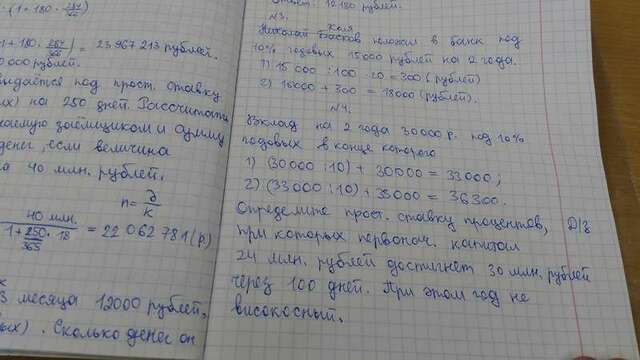 ·(1+180·
1+180· = 23 967 213 рублей.
0 000 рублей.
выдаётся под прост. ставку
ых) на 250 дней. Рассчитать
заёмщиком и сумму
денег, если величина
а 40 млн. рублей.
n = д/к
40 млн. / 1+250/365·18 = 22 062 781 (р.)
3 месяца 12000 рублей,
вых). Сколько денег он
Ответ: 12 180 рублей.
№3.
Коля
Николай Басков положил в банк под
10% годовых 15000 рублей на 2 года.
1) 15 000 : 100 · 20 = 300 (рублей)
2) 15000 + 300 = 18000 (рублей).
№4.
Вклад на 2 года 30000 р. под 10%
годовых в конце которого
1) (30000 : 10) + 30000 = 33000;
2) (33000 : 10) + 33000 = 36300.
Определите прост. ставку процентов, Д/з
при которых первонач. капитал
24 млн. рублей достигнет 30 млн. рублей
через 100 дней. При этом год не
високосный.